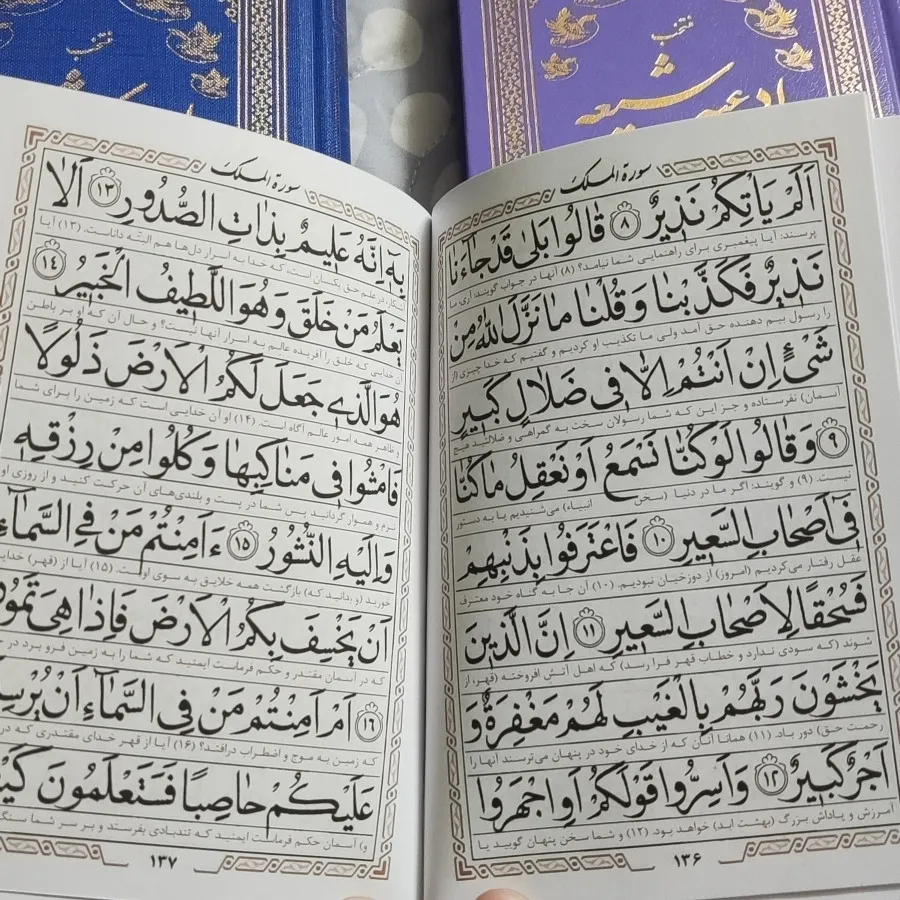 منتخب
منتخب
ادعیه شیعه
سورة الملک
اَلَمْ يَأْتِكُمْ نَذيرٌ ﴿٨﴾ قالُوا بَلى قَدْ جاءَنا
پرسند: آیا پیغمبری برای راهنمایی شما نیامد؟ (۸) آنها در جواب گویند: آری ما
نَذيرٌ فَكَذَّبْنا وَ قُلْنا ما نَزَّلَ اللهُ مِنْ
را رسول بیم دهنده حق آمد ولی ما تکذیب او کردیم و گفتیم که خدا چیزی (از
شَیْءٍ اِنْ اَنْتُمْ اِلاّ فی ضَلالٍ كَبيرٍ
آسمان) نفرستاده و جز این که شما رسولان سخت به گمراهی و ضلالتید هیچ
﴿٩﴾ وَ قالُوا لَوْ كُنّا نَسْمَعُ اَوْ نَعْقِلُ ما كُنّا
نیست. (۹) و گویند: اگر ما در دنیا (سخن انبیاء) می‌شنیدیم یا به دستور
فی اَصْحابِ السَّعيرِ ﴿١٠﴾ فَاعْتَرَفُوا بِذَنْبِهِمْ
عقل رفتار می‌کردیم (امروز) از دوزخیان نبودیم. (۱۰) آن جا به گناه خود معترف
فَسُحْقًا لِاَصْحابِ السَّعيرِ ﴿١١﴾ اِنَّ الَّذينَ
شوند (که سودی ندارد و خطاب قهر فرا رسد) که اهل آتش افروخته (قهر، از
يَخْشَوْنَ رَبَّهُمْ بِالْغَيْبِ لَهُمْ مَغْفِرَةٌ وَ
رحمت حق) دور باد. (۱۱) همانا آنان که از خدای خود در پنهان می‌ترسند آنها را
اَجْرٌ كَبيرٌ ﴿١٢﴾ وَ اَسِرُّوا قَوْلَكُمْ اَوِ اجْهَرُوا
آمرزش و پاداش بزرگ (بهشت ابد) خواهد بود. (۱۲) و شما سخن پنهان گویید یا
۱۳۶
سورة الملک
بِهٖ اِنَّهُ عَليمٌ بِذاتِ الصُّدُورِ ﴿١٣﴾ اَلا
آشکار، در علم حق یکسان است، که خدا به اسرار دل‌ها هم البتّه داناست. (۱۳) آیا
يَعْلَمُ مَنْ خَلَقَ وَ هُوَ اللَّطيفُ الْخَبيرُ ﴿١٤﴾
آن خدایی که خلق را آفریده عالم به اسرار آنها نیست؟ و حال آن که او بر باطن
هُوَ الَّذی جَعَلَ لَكُمُ الْاَرْضَ ذَلُولًا
و ظاهر همه امور عالم آگاه است. (۱۴) او آن خدایی است که زمین را برای شما
فَامْشُوا فی مَناكِبِها وَ كُلُوا مِنْ رِزْقِهٖ
نرم و هموار گردانید پس شما در پست و بلندی‌های آن حرکت کنید و از روزی او
وَ اِلَيْهِ النُّشُورُ ﴿١٥﴾ ءَاَمِنْتُمْ مَنْ فِی السَّماءِ
خورید (و بدانید که) بازگشت همه خلایق به سوی اوست. (۱۵) آیا از (قهر) خدایی
اَنْ يَخْسِفَ بِكُمُ الْاَرْضَ فَاِذا هِیَ تَمُورُ
که در آسمان مقتدر و حکم فرماست ایمنید که شما را به زمین فرو برد در
﴿١٦﴾ اَمْ اَمِنْتُمْ مَنْ فِی السَّماءِ اَنْ يُرْسِ
که زمین به موج و اضطراب درافتد؟ (۱۶) آیا از قهر خدای مقتدری که در
عَلَيْكُمْ حاصِبًا فَسَتَعْلَمُونَ كَيْ
و) آسمان حکم فرماست ایمنید که تندبادی بفرستد و بر سر شما سنگ
۱۳۷